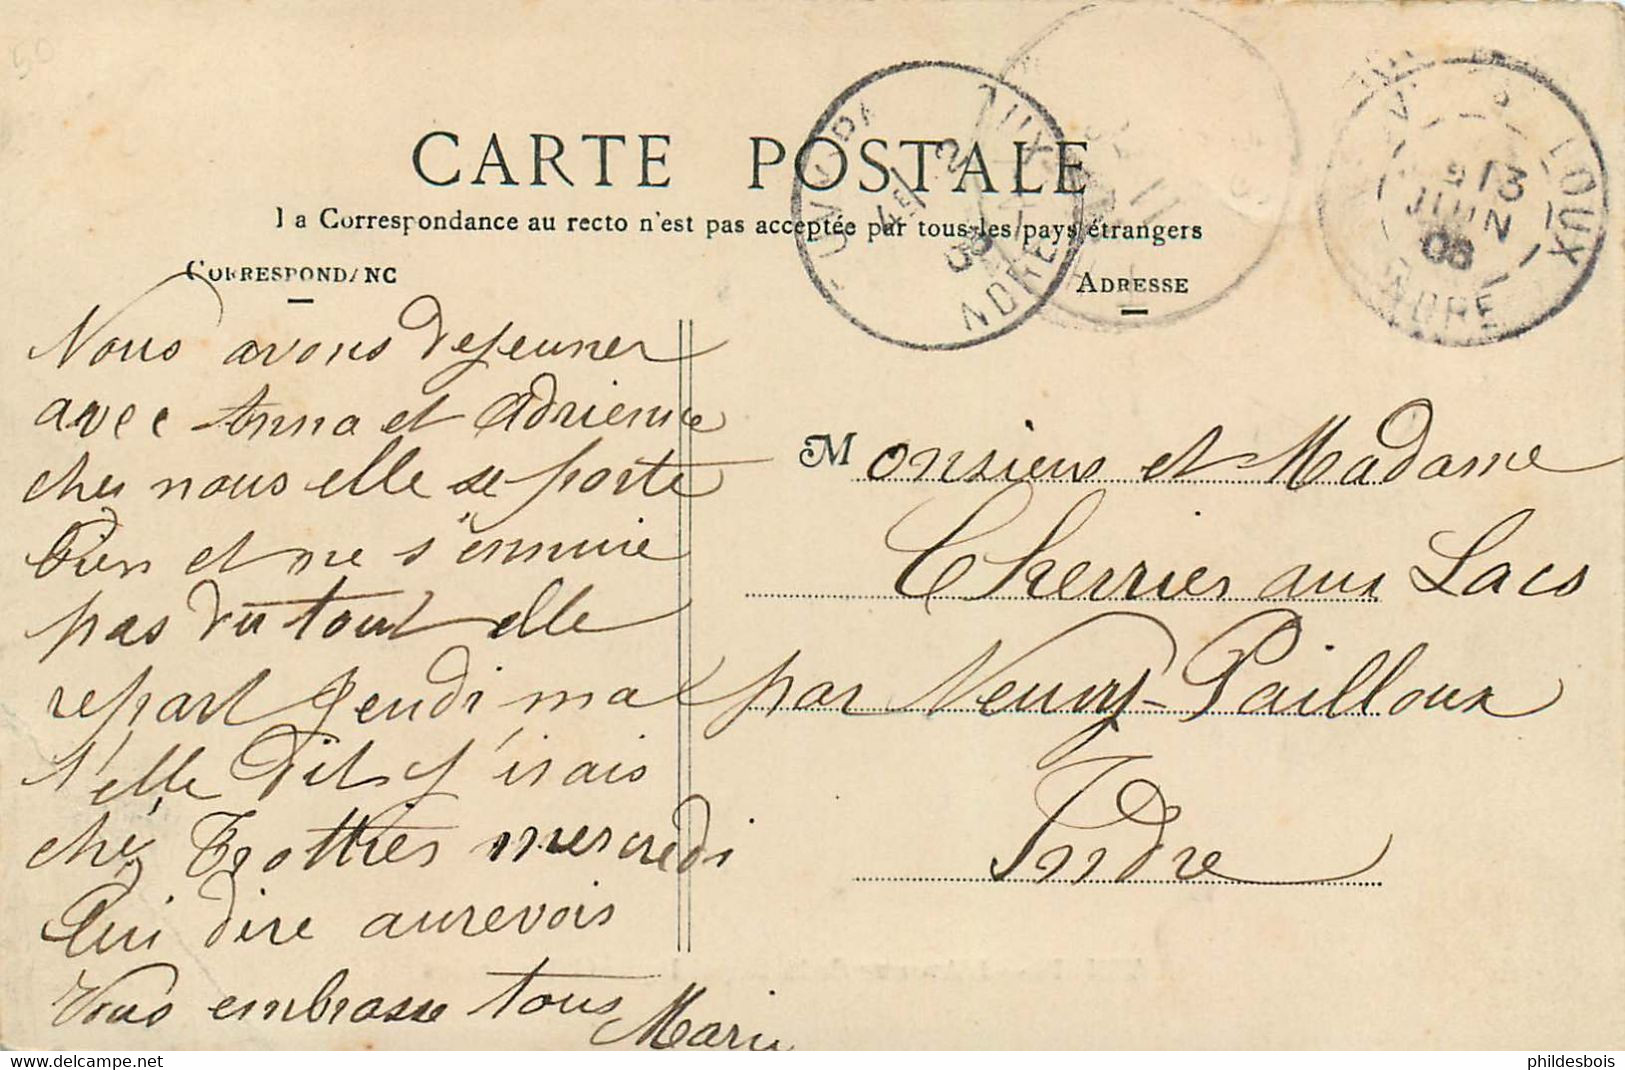 50
CARTE POSTALE
La Correspondance au recto n'est pas acceptée par tous les pays étrangers
CORRESPONDANC
ADRESSE
NEUVY-PA OUX
INDRE
13
JUIN
08
NDRE
Nous avons dejeuner
avec Anna et Adrienne
ches nous elle se porte
bien et ne s'ennuie
pas du tout elle
repart jeudi ma
s'elle dit j'irais
ché Trottier mercredi
lui dire aurevois
Vous embrasse tous
Marie
Monsieur et Madame
Cherrier aux Lacs
par Neuvy-Pailloux
Indre
delcampe.net
phildesbois